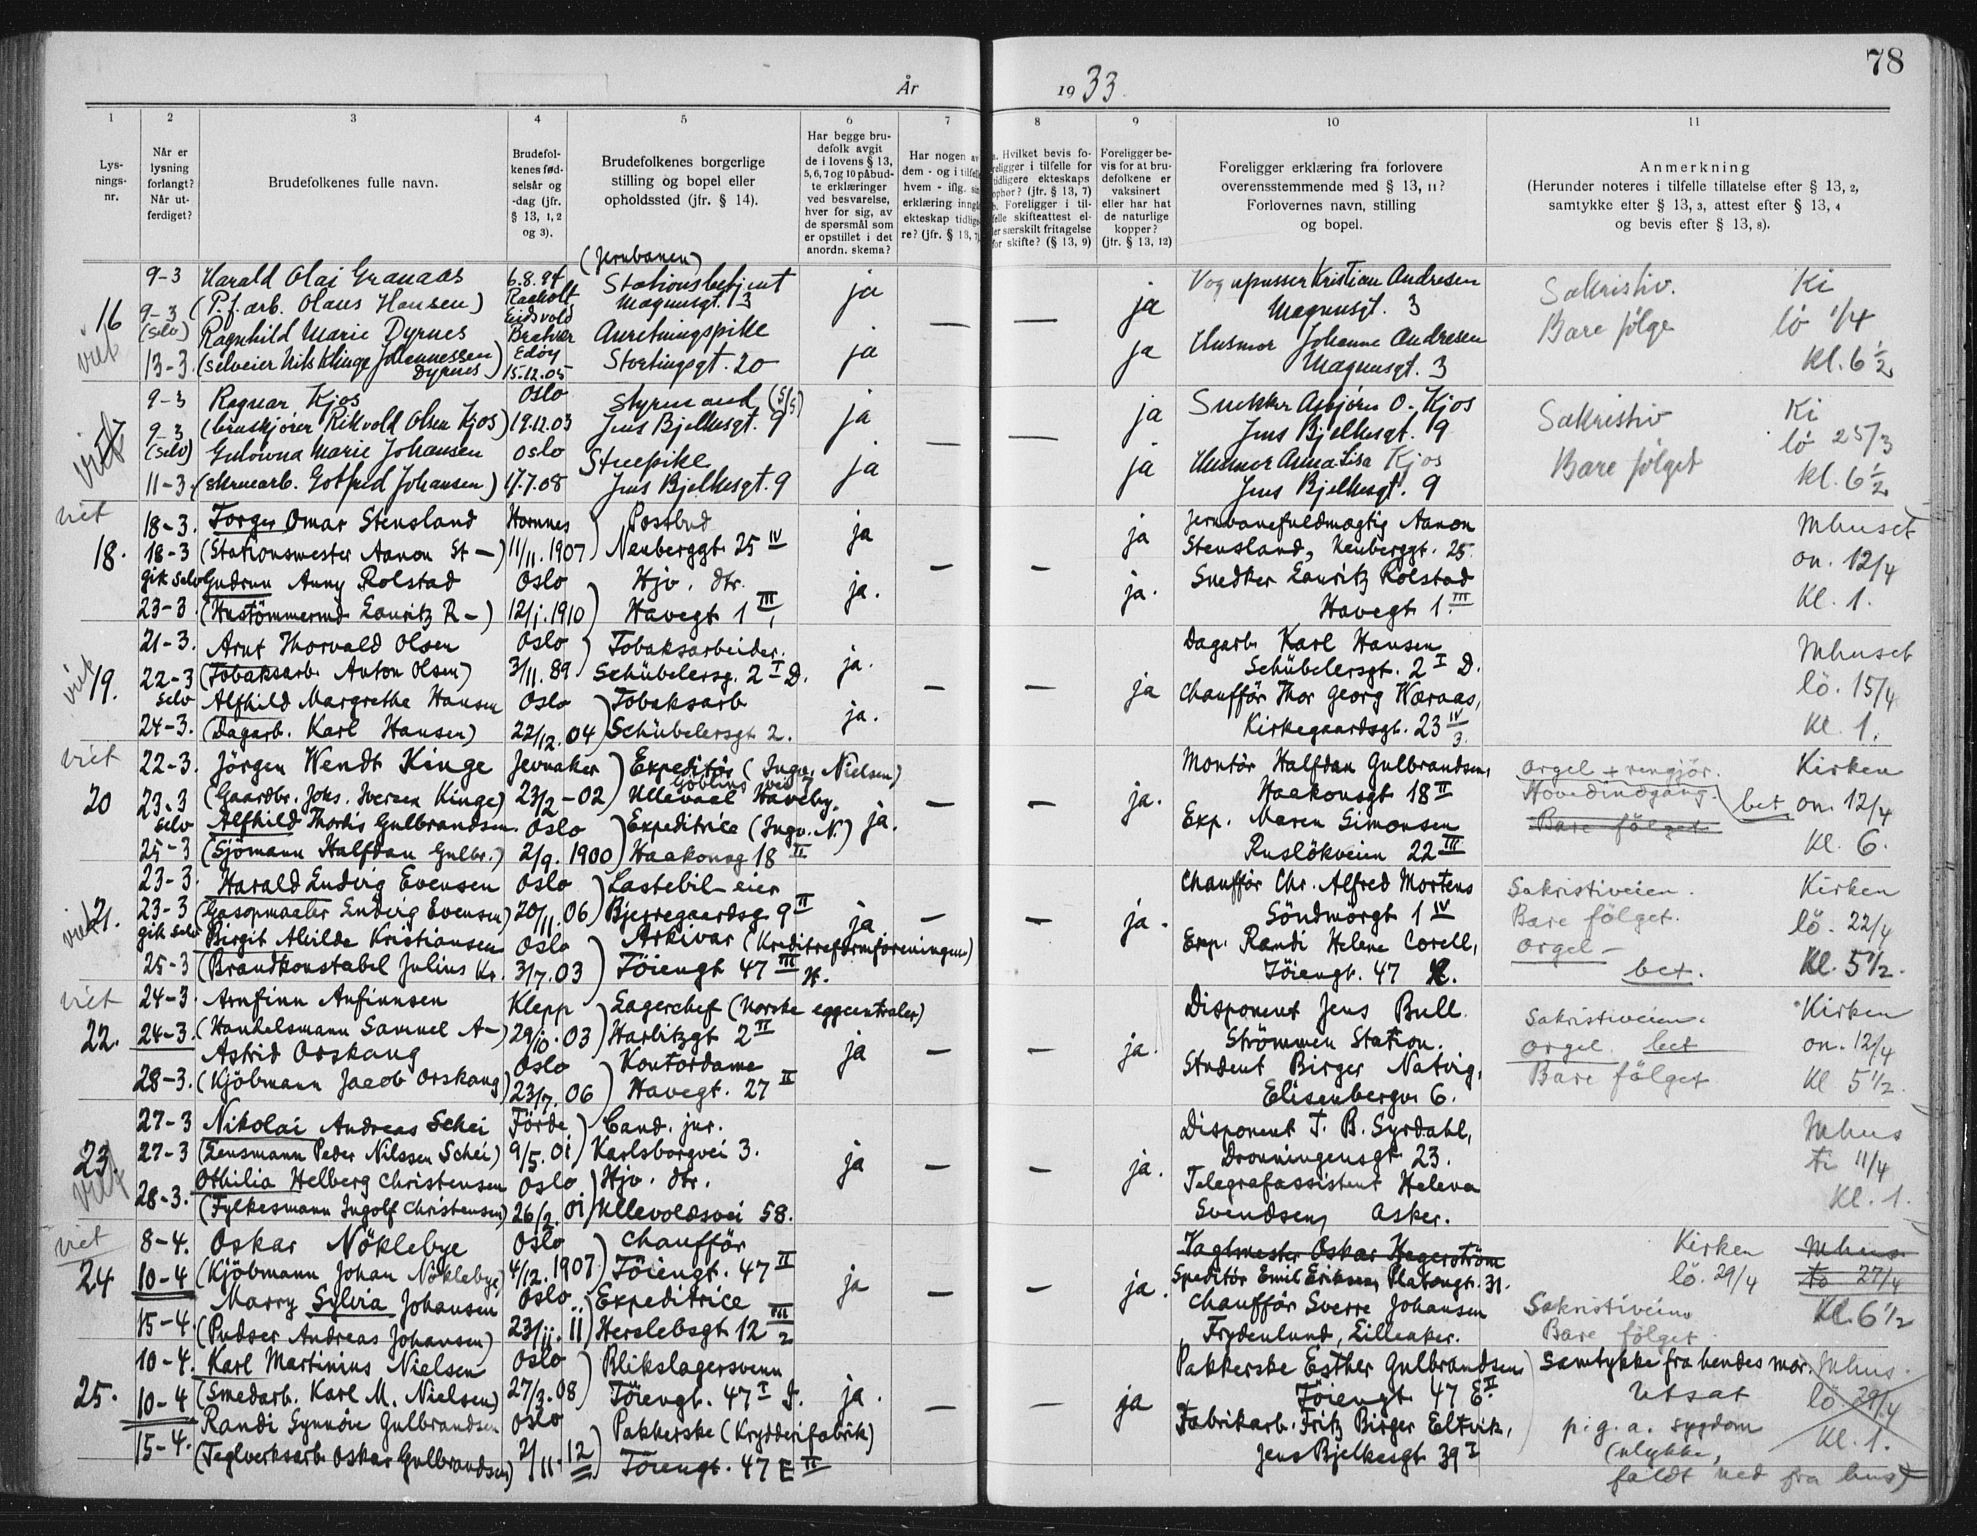 78
År 1933.
1 2 3 4 5 6 7 8 9 10 11
Lysningsnr.
Når er lysning forlangt? Når utferdiget?
Brudefolkenes fulle navn.
Brudefolkenes fødselsår og -dag (jfr. § 13, 1, 2 og 3).
Brudefolkenes borgerlige stilling og bopel eller opholdssted (jfr. § 14).
Har begge brudefolk avgit de i lovens § 13, 5, 6, 7 og 10 påbudte erklæringer ved besvarelse, hver for sig, av de spørsmål som er opstillet i det anordn. skema?
Har nogen av dem - og i tilfelle hvem - iflg. sin erklæring inngått ekteskap tidligere? (jfr. § 13, 7)
a. Hvilket bevis foreligger i tilfelle for tidligere ekteskaps ophør? (jfr. § 13, 7) b. Foreligger i tilfelle skifteattest eller særskilt fritagelse for skifte? (§ 13, 9)
Foreligger bevis for at brudefolkene er vaksinert eller har hat de naturlige kopper? (jfr. § 13, 12)
Foreligger erklæring fra forlovere overensstemmende med § 13, 11? Forlovernes navn, stilling og bopel.
Anmerkning (Herunder noteres i tilfelle tillatelse efter § 13, 2, samtykke efter § 13, 3, attest efter § 13, 4 og bevis efter § 13, 8).
(Jernbanen)
9-3 Harald Olai Granaas 6.8.94 Stationsbetjent ja Vognpusser Kristian Andresen Sakristiv. Ki
9-3 (P.f.arb. Olaus Hansen) Raaholt Eidsvold Magnusgt. 3 ja Magnusgt. 3 Bare følge lö 1/4
16 (selv) Ragnhild Marie Dyrnes Edöy Anretningspike — — Husmor Johanne Andresen
viet 13-3 (selveier Nils Klinge Johannessen Dyrnes) 15.12.05 Stortingsgt. 20 ja ja Magnusgt. 3 kl. 6 1/2
9-3 Ragnar Kjos Oslo Styrmand (S/S) ja ja Snekker Asbjörn O. Kjos Sakristiv Ki
9-3 (bruskjører Rikvold Olsen Kjos) 19.12.03 Jens Bjelkesgt. 9 Jens Bjelkesgt. 9 lö 25/3
viet (selv) Gulowna Marie Johansen Oslo Stuepike — — Husmor Anna Lisa Kjos Bare følget
11-3 (skruearb. Gotfred Johansen) 17.7.08 Jens Bjelkesgt. 9 ja ja Jens Bjelkesgt. 9 kl. 6 1/2
viet 18-3. Torger Omar Stensland Hornnes Postbud ja ja Jernbanefuldmægtig Aanon Mhuset
18. 18-3 (Stationsmester Aanon St—) 11/11.1907 Neuberggt. 25 IV Stensland, Neuberggt. 25. on. 12/4
gik selv Gudrun Anny Rolstad Oslo Hjv. dtr. ja. — — ja. Snedker Lauritz Rolstad Kl. 1.
23-3 (Hustömmermd Lauritz R—) 12/1.1910 Havegt 1 III Havegt 1. III
21-3. Arnt Thorvald Olsen Oslo Tobaksarbeider. ja. Dagarb. Karl Hansen Mhuset
viet 19. 22-3 (Tobaksarb. Anton Olsen) 3/11.89 Schübelersg. 2 I D. Schübelersgt. 2 I D. lö. 15/4
selv Alfhild Margrethe Hansen Oslo Tobaksarb — — ja Chauffør Thor Georg Wæraas,
24-3. (Dagarb. Karl Hansen) 22/12.04 Schübelersgt 2. ja. Kirkegaardsgt. 23 IV/3 Kl. 1.
viet 22-3. Jörgen Wendt Kinge Jevnaker Expeditör (Ingv. Nielsen) Montør Halfdan Gulbrandsen, orgel + rengjør. Kirken
20 23.3 (Gaardbr. Johs. Iversen Kinge) 23/2-02 Ullevaal Haveby. ja. — — ja. Haakonsgt 18 II Hovedindgang. bet on. 12/4
selv Alfhild Thordis Gulbrandsen. Oslo Expeditrice (Ingv. N.) Exp. Maren Simonsen Bare fölget
25-3 (Sjömann Halfdan Gulbr.) 2/9.1900 Haakonsg 18 II Ruslökveien 22 III Kl. 6.
23-3. Harald Ludvig Evensen Oslo Lastebil-eier Chauffør Chr. Alfred Mortens Sakristiveien. Kirken
viet 21. 23-3 (Gasopmaaler Ludvig Evensen) 20/11.06 Bjerregaardsg 9 II ja — — ja. Söndmörgt 1 IV Bare fölget. lö. 22/4
gik selv Birgit Alvilde Kristiansen Oslo Arkivar (Kreditreformforeningen) Exp. Randi Helene Corell, orgel —
25-3 (Brandkonstabel Julius Kr. 3/7.03 Töiengt 47 III H. Töiengt. 47 H. bet. Kl. 5 1/2.
viet 24-3. Arnfinn Anfinnsen Klepp Lagerchef (Norske eggcentraler) Disponent Jens Bull. Sakristiveien. Kirken
22. 24-3. (Hanhelsmann Samuel A—) 29/10.03 Harbitzgt 2 II ja — — ja. Strömmen Station. orgel. bet on. 12/4
Astrid Orskaug Oslo Kontordame Student Birger Natvig, Bare fölget
28-3. (Kjöbmann Jacob Orskaug) 23/7.06 Havegt. 27 II Elisenbergv. 6. Kl. 5 1/2.
27-3 Nikolai Andreas Schei Förde Cand. jur. Disponent T. B. Syrdahl, Mhus
23. 27-3 (Lensmann Peder Nilssen Schei) 9/5.01 Karlsborgvei 3. ja — — ja. Dronningensgt 23. ti 11/4
viet Othilia Helberg Christensen Oslo Hjv. dtr. Telegrafassistent Helena
28-3. (Fylkesmann Ingolf Christensen) 26/2.01 Ullevoldsvei 58. Svendsen, Asker. Kl. 1.
viet 8-4. Oskar Nöklebye Oslo Chauffør Vaglmester Oskar Hagerström Kirken Mhus
24 10-4 (Kjöbmann Johan Nöklebye) 4/12.1907 Töiengt. 47 II ja — — ja. Speditör Emil Eriksen, Platougt. 31. lö. 29/4 to 27/4
Marry Sylvia Johansen Oslo Expeditrice Chauffør Sverre Johansen Sakristiveien Kl. 6 1/2
15-4. (Pudser Andreas Johansen) 23/11.11 Herslebsgt 12 III/2 Frydenlund, Lilleaker. Bare fölget.
10-4. Karl Martinius Nielsen Oslo Blikslagersvenn Pakkerske Esther Gulbrandsen Samtykke fra hendes mor. Mhus.
25. 10-4 (Smedarb. Karl M. Nielsen) 27/3.08 Töiengt. 47 I J. ja. — — ja Töiengt 47 E. II Utsat lö. 29/4
Randi Synnöve Gulbrandsen Oslo Pakkerske (Krydderifabrik) Fabrikarb. Fritz Birger Eltvik, p.g.a. sygdom Kl. 1.
15-4. (Teglverksarb. Oskar Gulbrandsen) 2/11.12 Töiengt. 47 E II Jens Bjelkesgt 39 I (ulykke,
faldt ned fra hus)